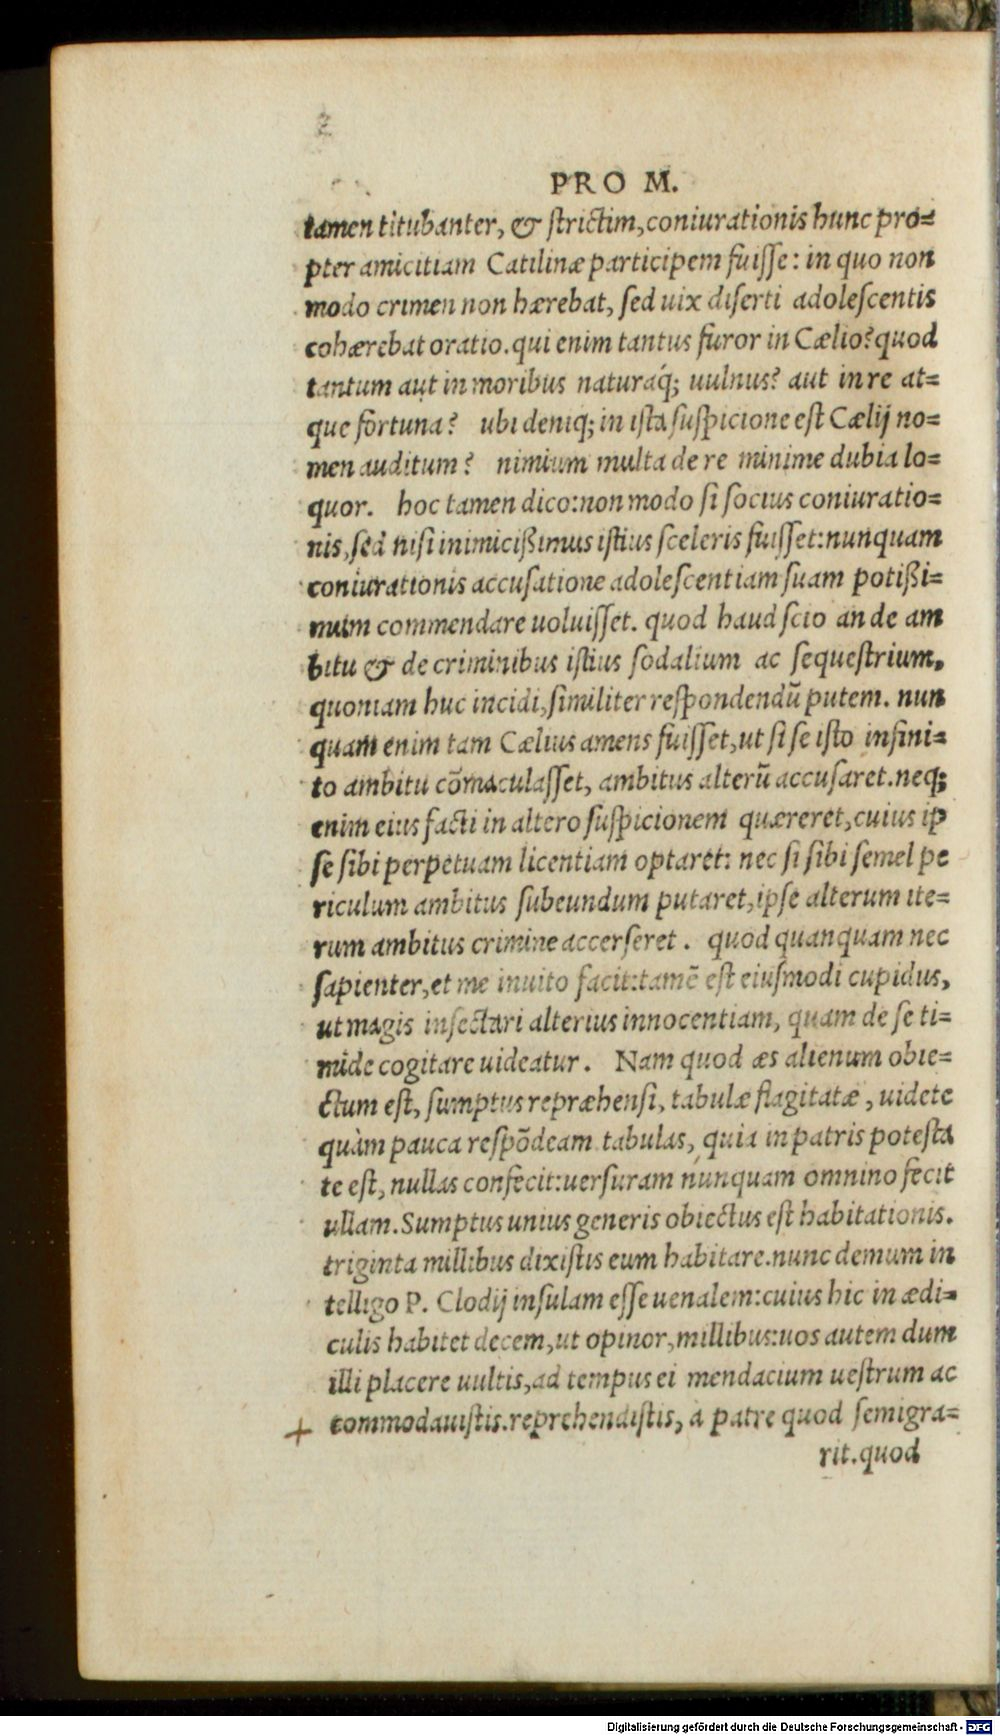 PRO M.
tamen titubanter, & ſtrictim, coniurationis hunc pro=
pter amicitiam Catilinæ participem fuiſſe: in quo non
modo crimen non hærebat, ſed uix diſerti adoleſcentis
cohærebat oratio. qui enim tantus furor in Cælio? quod
tantum aut in moribus naturaq́; uulnus? aut in re at=
que fortuna? ubi deniq; in iſta ſuſpicione eſt Cælij no=
men auditum? nimium multa de re minime dubia lo=
quor. hoc tamen dico: non modo ſi ſocius coniuratio=
nis, ſed niſi inimicißimus iſtius ſceleris fuiſſet: nunquam
coniurationis accuſatione adoleſcentiam ſuam potißi=
mum commendare uoluiſſet. quod haud ſcio an de am
bitu & de criminibus iſtius ſodalium ac ſequeſtrium,
quoniam huc incidi, ſimiliter reſpondendū putem. nun
quam enim tam Cælius amens fuiſſet, ut ſi ſe iſto infini=
to ambitu cōmaculaſſet, ambitus alterū accuſaret. neq;
enim eius facti in altero ſuſpicionem quæreret, cuius ip
ſe ſibi perpetuam licentiam optaret: nec ſi ſibi ſemel pe
riculum ambitus ſubeundum putaret, ipſe alterum ite=
rum ambitus crimine accerſeret. quod quanquam nec
ſapienter, et me inuito facit: tamē eſt eiuſmodi cupidus,
ut magis inſectari alterius innocentiam, quam de ſe ti=
mide cogitare uideatur. Nam quod æs alienum obie=
ctum eſt, ſumptus repræhenſi, tabulæ flagitatæ, uidete
quàm pauca reſpōdeam. tabulas, quia in patris poteſta
te eſt, nullas confecit: uerſuram nunquam omnino fecit
ullam. Sumptus unius generis obiectus eſt habitationis.
triginta millibus dixiſtis eum habitare. nunc demum in
telligo P. Clodij inſulam eſſe uenalem: cuius hic in ædi=
culis habitet decem, ut opinor, millibus: uos autem dum
illi placere uultis, ad tempus ei mendacium ueſtrum ac
+ commodauiſtis. reprehendiſtis, a patre quod ſemigra=
rit. quod
Digitalisierung gefördert durch die Deutsche Forschungsgemeinschaft - DFG